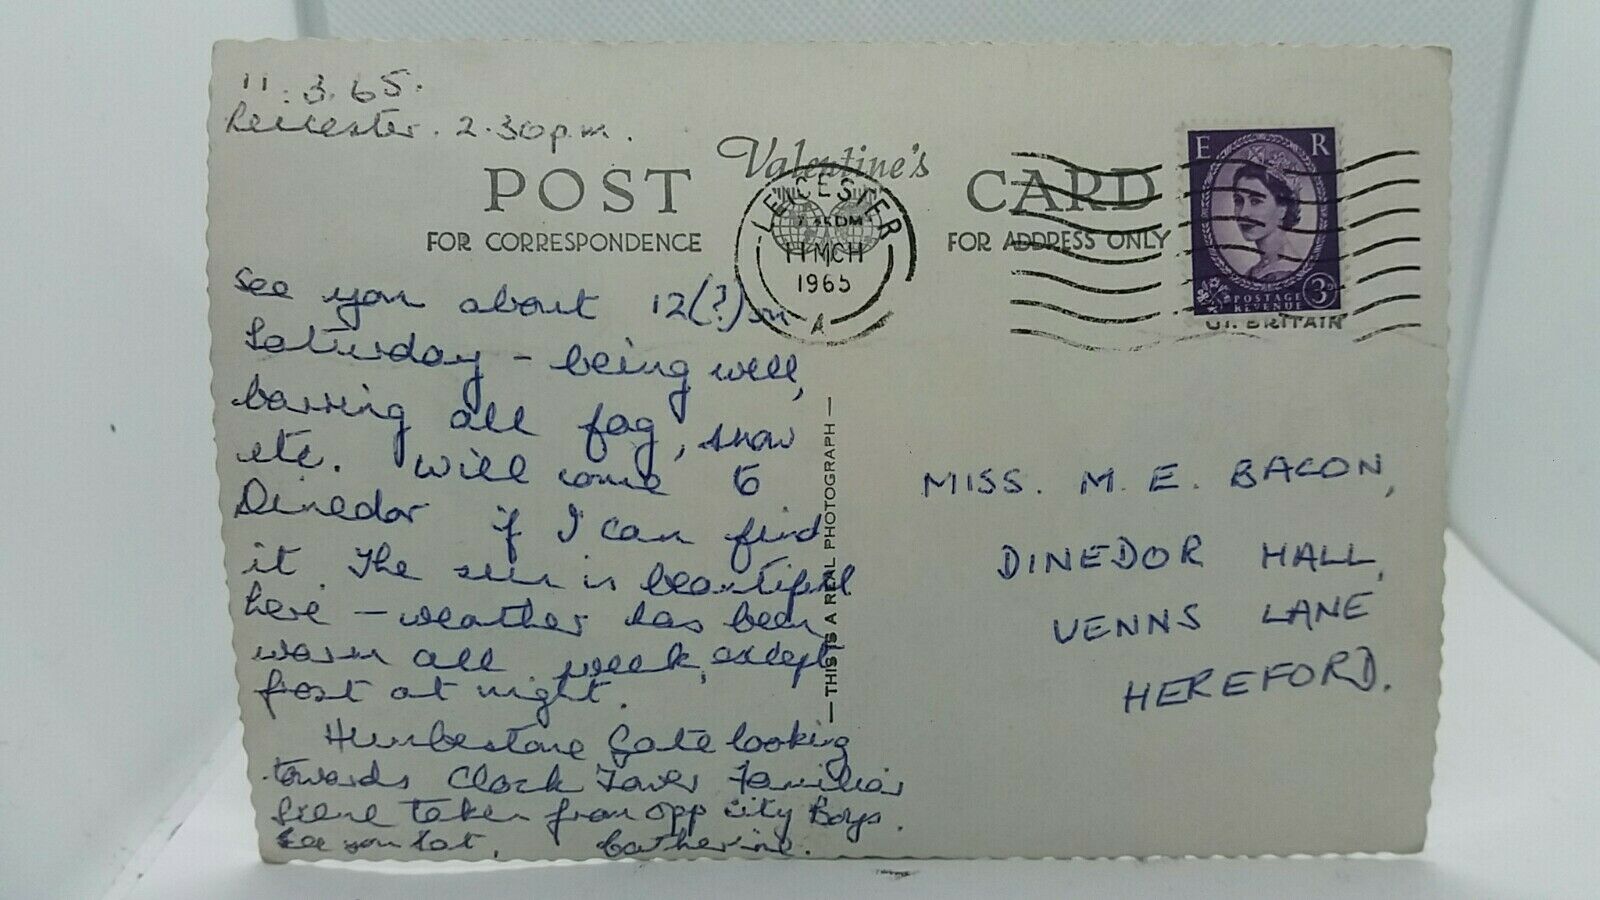 11.3.65.
Leicester. 2.30p.m.
Valentine's
POST CARD
FOR CORRESPONDENCE
FOR ADDRESS ONLY
LEICESTER
11 MCH
1965
A
E R
POSTAGE
REVENUE
3D
GT. BRITAIN
See you about 12(?) on
Saturday – being well,
barring all fog, snow
etc. Will come to
Dinedor if I can find
it. The sun is beautiful
here – weather has been
warm all week, except
frost at night.
Humbestone Gate looking
towards Clock Tower Familiar
scene taken from opp City Boys.
See you Sat. Catherine.
— THIS IS A REAL PHOTOGRAPH —
MISS. M. E. BACON,
DINEDOR HALL,
VENNS LANE
HEREFORD.